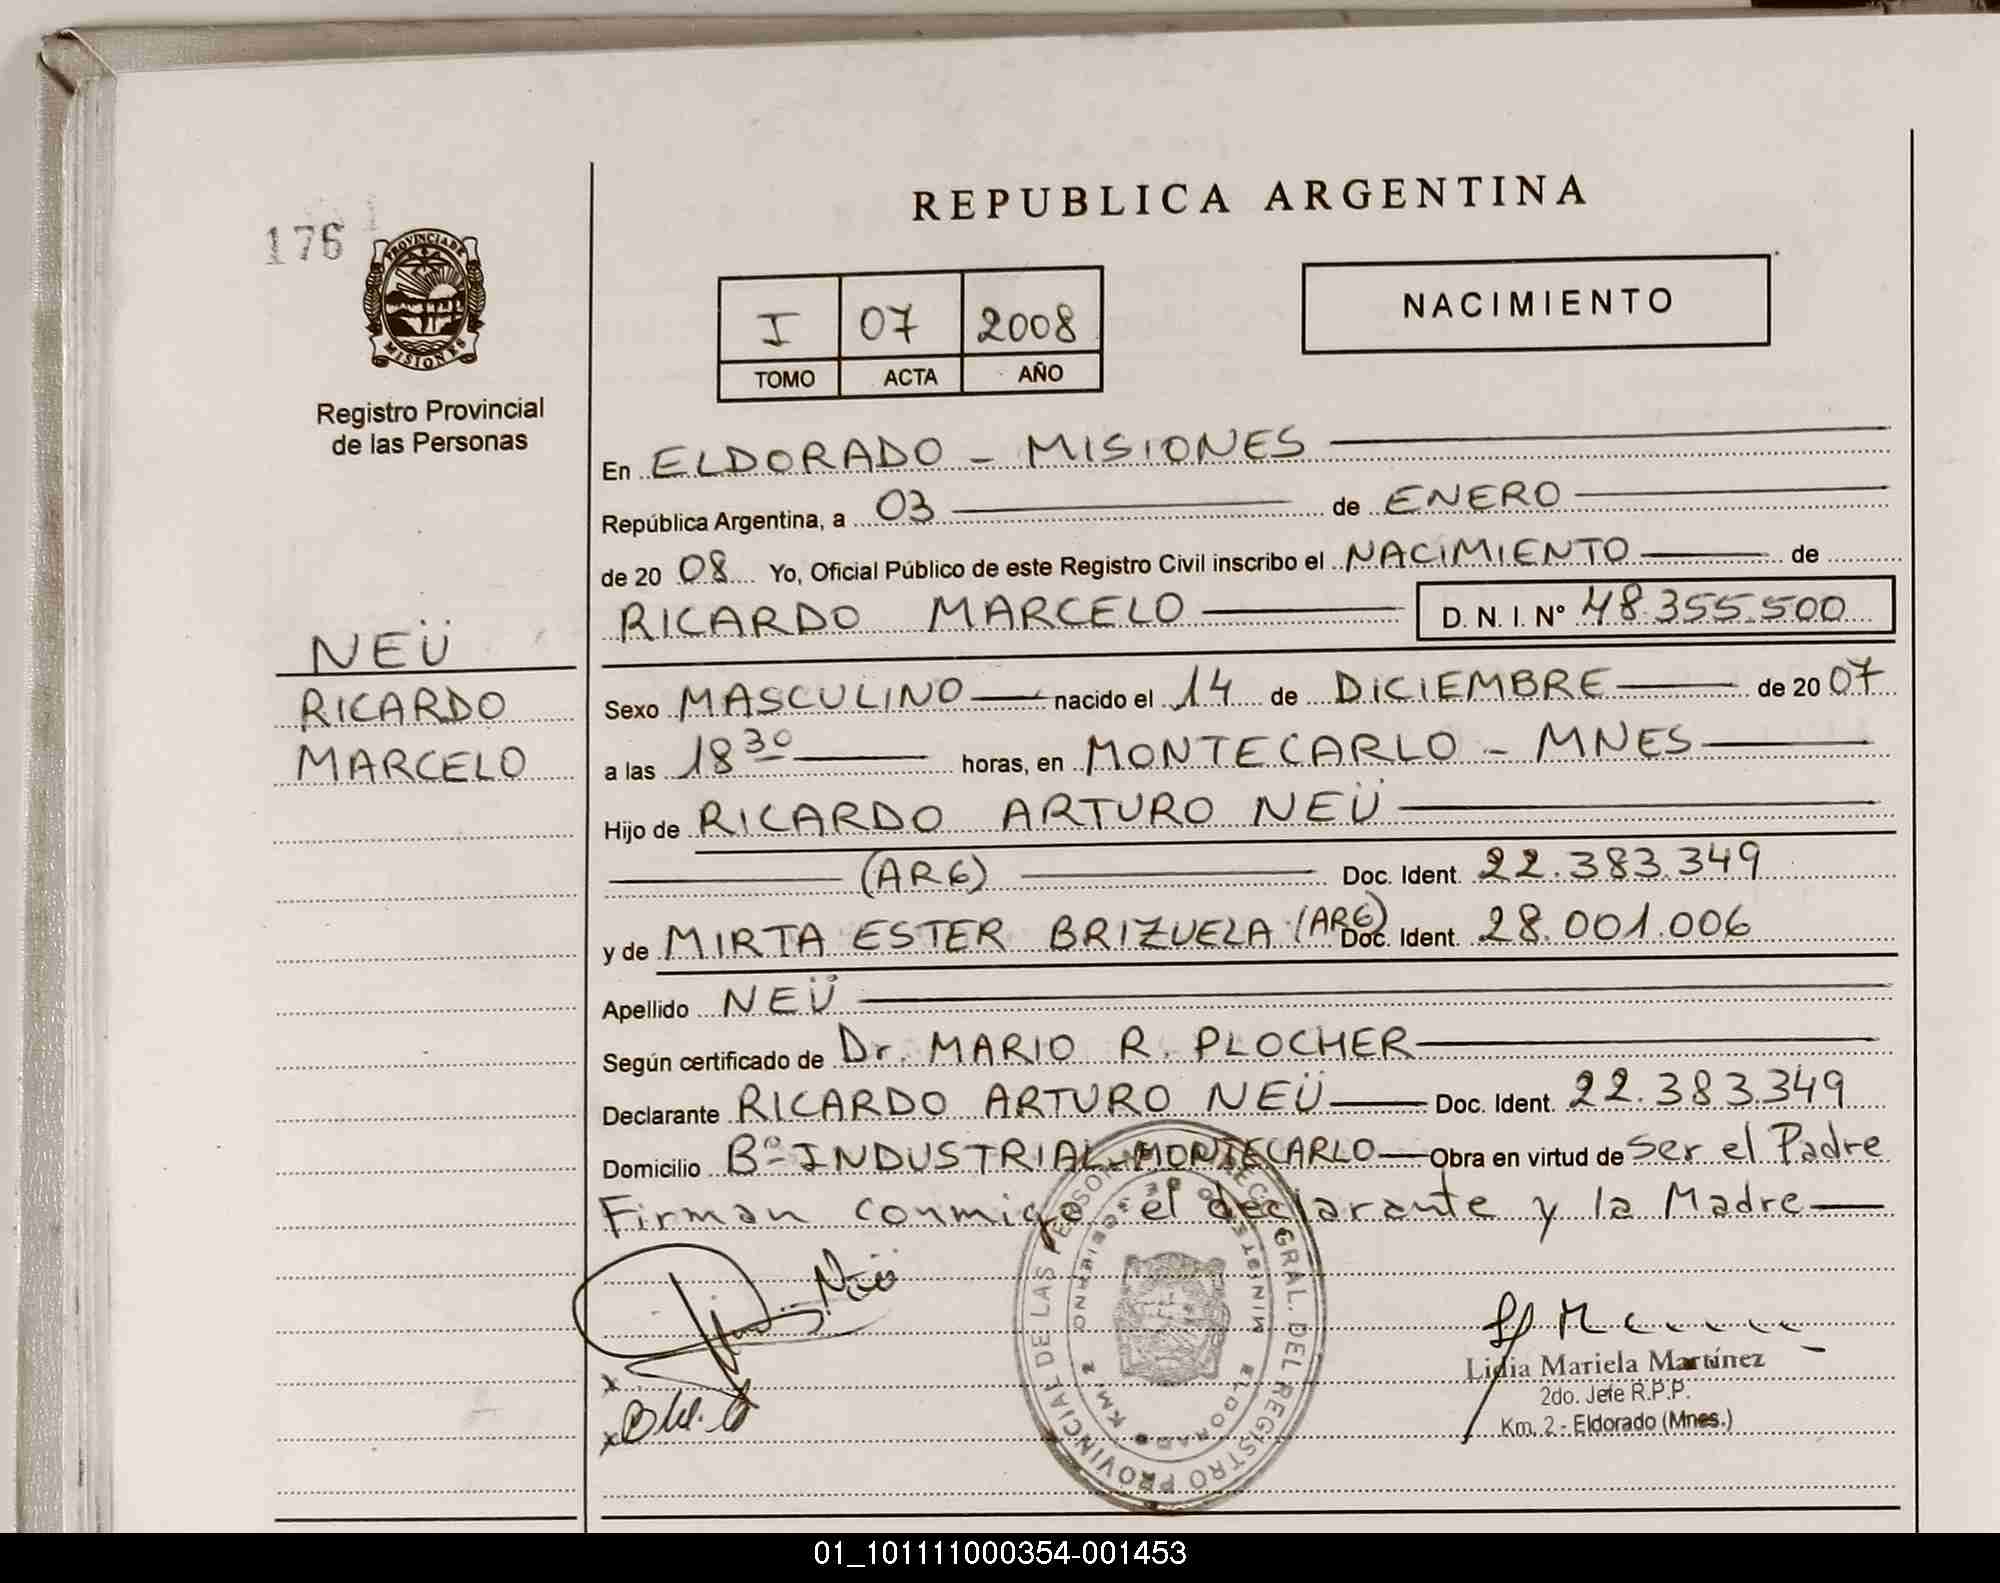 REPUBLICA ARGENTINA
176
PROVINCIA DE
MISIONES
Registro Provincial
de las Personas
I 07 2008
TOMO ACTA AÑO
NACIMIENTO
En ELDORADO - MISIONES
República Argentina, a 03 de ENERO
de 20 08 Yo, Oficial Público de este Registro Civil inscribo el NACIMIENTO de
RICARDO MARCELO D. N. I. Nº 48.355.500
NEÜ
RICARDO
MARCELO
Sexo MASCULINO nacido el 14 de DICIEMBRE de 20 07
a las 18 30 horas, en MONTECARLO - MNES
Hijo de RICARDO ARTURO NEÜ
(ARG) Doc. Ident. 22.383.349
y de MIRTA ESTER BRIZUELA (ARG) Doc. Ident. 28.001.006
Apellido NEÜ
Según certificado de Dr. MARIO R. PLOCHER
Declarante RICARDO ARTURO NEÜ Doc. Ident. 22.383.349
Domicilio Bº INDUSTRIAL - MONTECARLO Obra en virtud de Ser el Padre
Firman conmigo el declarante y la Madre
Neü
GRAL. DEL REGISTRO PROVINCIAL DE LAS PERSON
MINISTE DE GOBIERNO
ELDORADO KM 2
x
x
Lidia Mariela Martínez
2do. Jefe R.P.P.
Km. 2 - Eldorado (Mnes.)
01_101111000354-001453